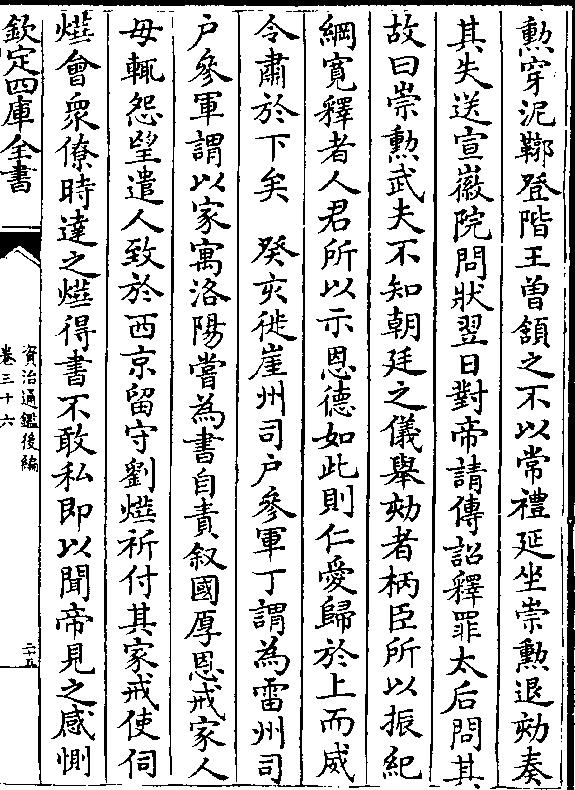 勲穿泥鞹登階王曽頷之不以常禮延坐崇勲退劾奏
其失送宣徽院問狀翌日對帝請傳詔釋罪太后問其
故曰崇勲武夫不知朝廷之儀舉劾者柄臣所以振紀
綱寛釋者人君所以示恩德如此則仁愛歸於上而威
令肅於下矣　癸亥徙崖州司户參軍丁謂為雷州司
户參軍謂以家寓洛陽嘗為書自責叙國厚恩戒家人
毋輒怨望遣人致於西京留守劉燁祈付其家戒使伺
燁會衆僚時達之燁得書不敢私即以聞帝見之感惻
欽定四庫全書
資治通鑑後編
卷三十六
二十五